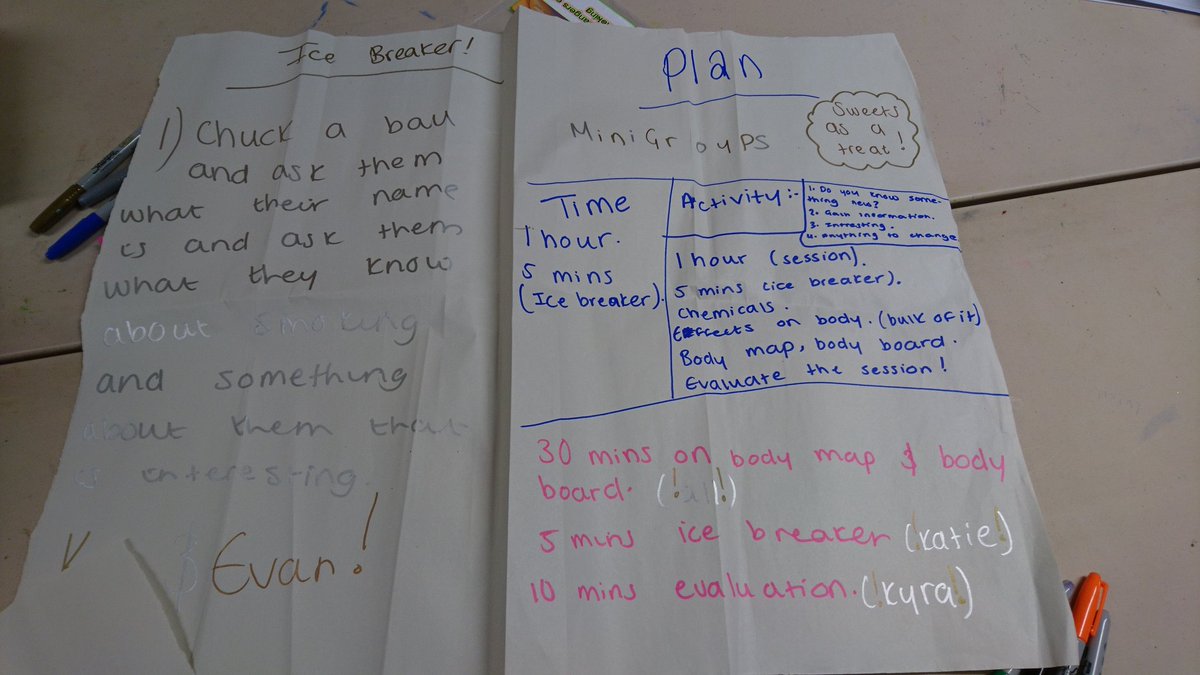 Ice Breaker!
1) Chuck a ball
and ask them
what their name
is and ask them
what they know
about smoking
and something
about them that
is interesting.
Evan!
Plan
MiniGroups
Sweets
as a
treat!
Time
1 hour.
5 mins
(Ice breaker).
Activity:-
1. Do you know some-
thing new?
2. Gain information.
3. Intresting.
4. Anything to change.
1 hour (session).
5 mins (ice breaker).
Chemicals.
Effects on body. (bulk of it)
Body map, body board.
Evaluate the session!
30 mins on body map & body
board. (!all!)
5 mins ice breaker (!katie!)
10 mins evaluation. (!kyra!)